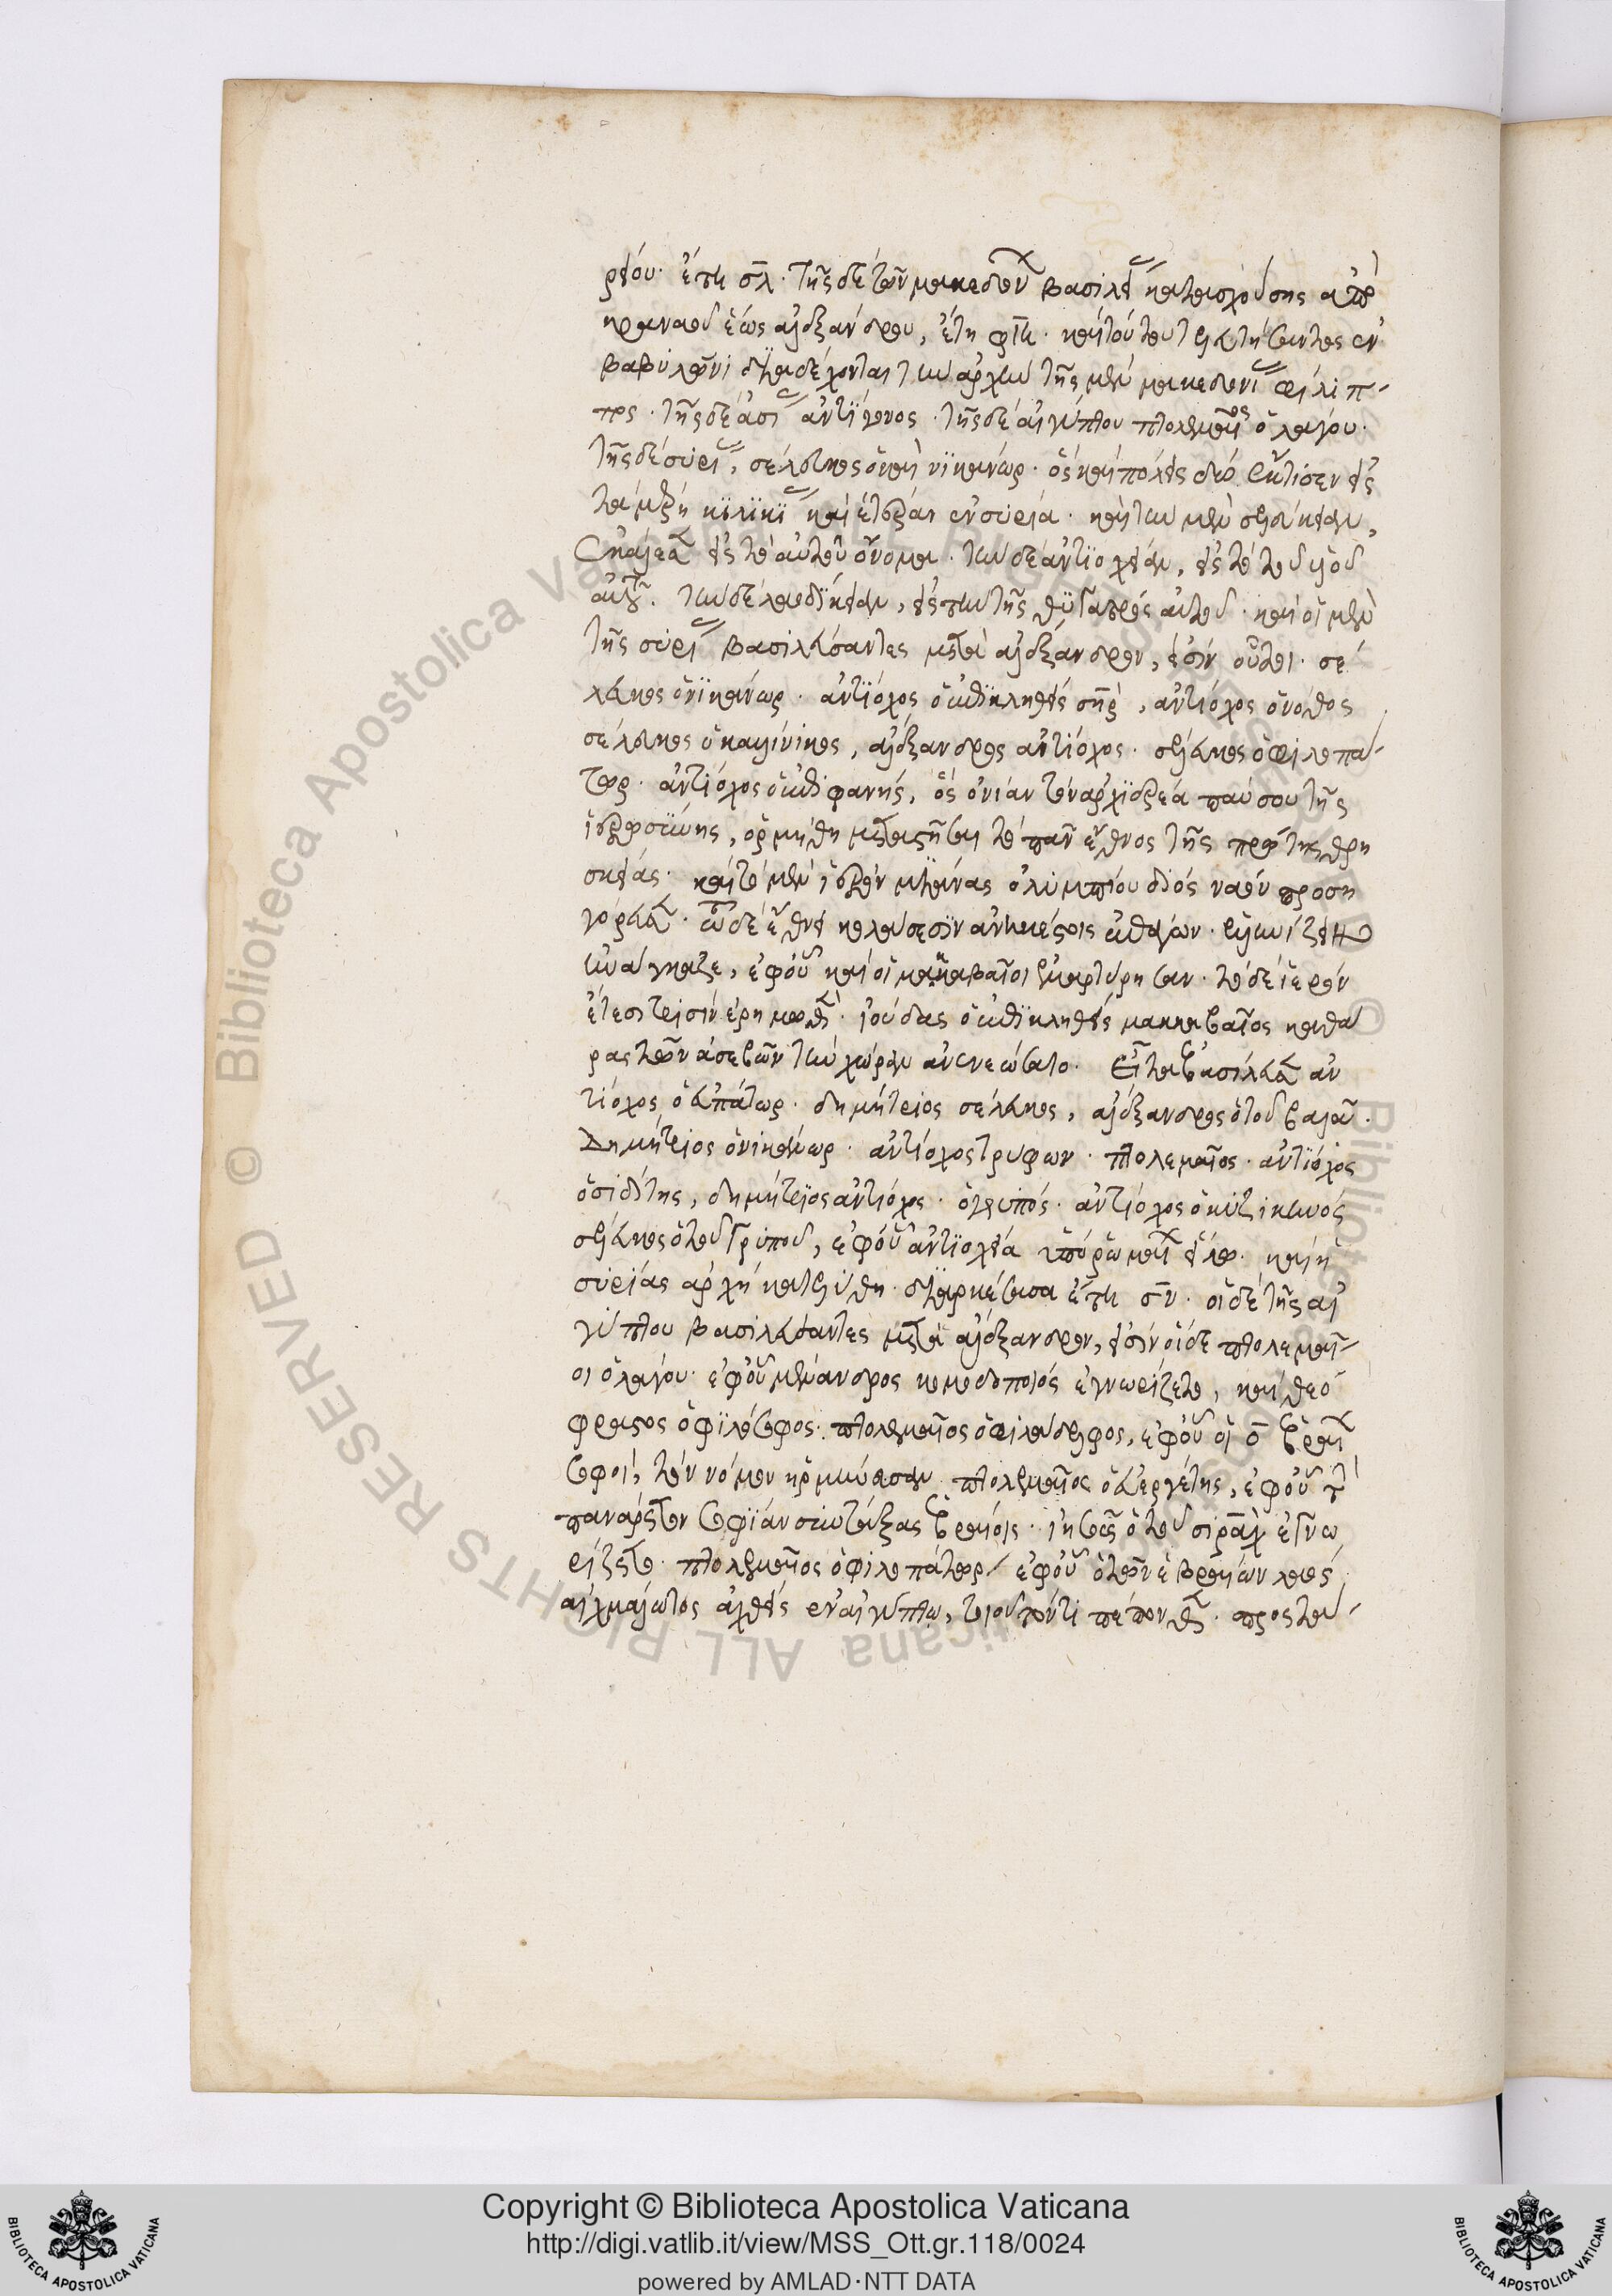 ρείου· ἔτη σλ· τῆς δὲ τῶν μακεδόνων βασιλείας κατασχούσης ἀπὸ
κραναοῦ ἕως ἀλεξάνδρου, ἔτη φιη· καὶ τούτου τελευτήσαντος ἐν
βαβυλῶνι διαδέχονται τὴν ἀρχὴν τῆς μὲν μακεδονίας φίλιπ-
πος· τῆς δὲ ἀσίας ἀντίγονος· τῆς δὲ αἰγύπτου πτολεμαῖος ὁ λαγόυ·
τῆς δὲ συρίας, σέλευκος ὁ καὶ νικάνωρ· ὃς καὶ πόλεις δύο ἔκτισεν εἰς
τὰ μεταξὺ κιλικίας καὶ ἑτέραν ἐν συρία· καὶ τὴν μὲν σελεύκειαν,
ἐκάλεσεν εἰς τὸ αὐτοῦ ὄνομα· τὴν δὲ ἀντιόχειαν, εἰς τὸ τοῦ υἱοῦ
αὐτοῦ. τὴν δὲ λαοδίκειαν, εἰς τὴν τῆς θυγατρός αὐτοῦ· καὶ οἱ μὲν
τῆς συρίας βασιλεύσαντες μετὰ ἀλέξανδρον, εἰσίν οὗτοι· σέ
λευκος ὁ νικάνωρ· ἀντίοχος ὁ ἐπικληθείς σωτὴρ, ἀντίοχος ὁ νόθος
σέλευκος ὁ καλίνικος, ἀλέξανδρος ἀντίοχος· σέλευκος ὁ φιλοπά-
τωρ· ἀντίοχος ὁ ἐπιφανής, ὃς ὀνίαν τὸν ἀρχιερέα παύσας τῆς
ἱερωσύνης, ὁρμήθη μεταστῆσαι τὸ πᾶν ἔθνος τῆς πρώτης θρη
σκείας· καὶ τὸ μὲν ἱερόν μιάνας ὀλυμπίου διός ναόν προση
γόρευσεν· τὸ δὲ ἔθνει κολάσεσιν ἀνηκέστοις ἐπάγων· ἑλληνίζειν
ἠνάγκαζε, ἐφ' οὗ καὶ οἱ μακκαβαῖοι ἐμαρτύρησαν· τὸ δὲ ἱερόν
ἔτεσι τρισίν ἐρημωθὲν· ἰούδας ὁ ἐπικληθείς μακκαβαῖος καθά
ρας τῶν ἀσεβῶν τὴν χώραν ἀνενεώσατο. εἶτα ἐβασίλευσεν ἀν
τίοχος ὁ εὐπάτωρ· δημήτριος σέλευκος, ἀλέξανδρος ὁ τοῦ βαλᾶ·
Δημήτριος ὁ νικάνωρ· ἀντίοχος τρύφων· πτολεμαῖος· ἀντίοχος
ὁ σιδίτης, δημήτριος ἀντίοχος· ὁ γρυπός· ἀντίοχος ὁ κυζικηνός
σέλευκος ὁ τοῦ γρυποῦ, ἐφ' οὗ ἀντιόχεια ὑπὸ ῥωμαίων ἑάλω· καὶ ἡ
συρίας ἀρχή κατελύθη· διαρκέσασα ἔτη σν· οἱ δὲ τῆς αἰ
γύπτου βασιλεύσαντες μετὰ ἀλέξανδρον, εἰσίν οἵδε πτολεμαῖ-
οι ὁ λαγόυ· ἐφ' οὗ μένανδρος κωμωδοποιός ἐγνωρίζετο, καὶ θεό
φραστος ὁ φιλόσοφος· πτολεμαῖος ὁ φιλάδελφος, ἐφ' οὗ οἱ ο ἑβραίων
σοφοί, τὸν νόμον ἡρμήνευσαν πτολεμαῖος ὁ εὐεργέτης, ἐφ' οὗ τὴν
πανάρετον σοφίαν συντάξας ἑβραίοις· ἰησοῦς ὁ τοῦ σιρὰχ ἐγνω
ρίζετο· πτολεμαῖος ὁ φιλοπάτωρ ἐφ' οὗ ὁ τῶν ἑβραίων λαός
αἰχμάλωτος ἀχθείς ἐν αἰγύπτω, τριουτόντι πέπονθεν· προς τοῦ-